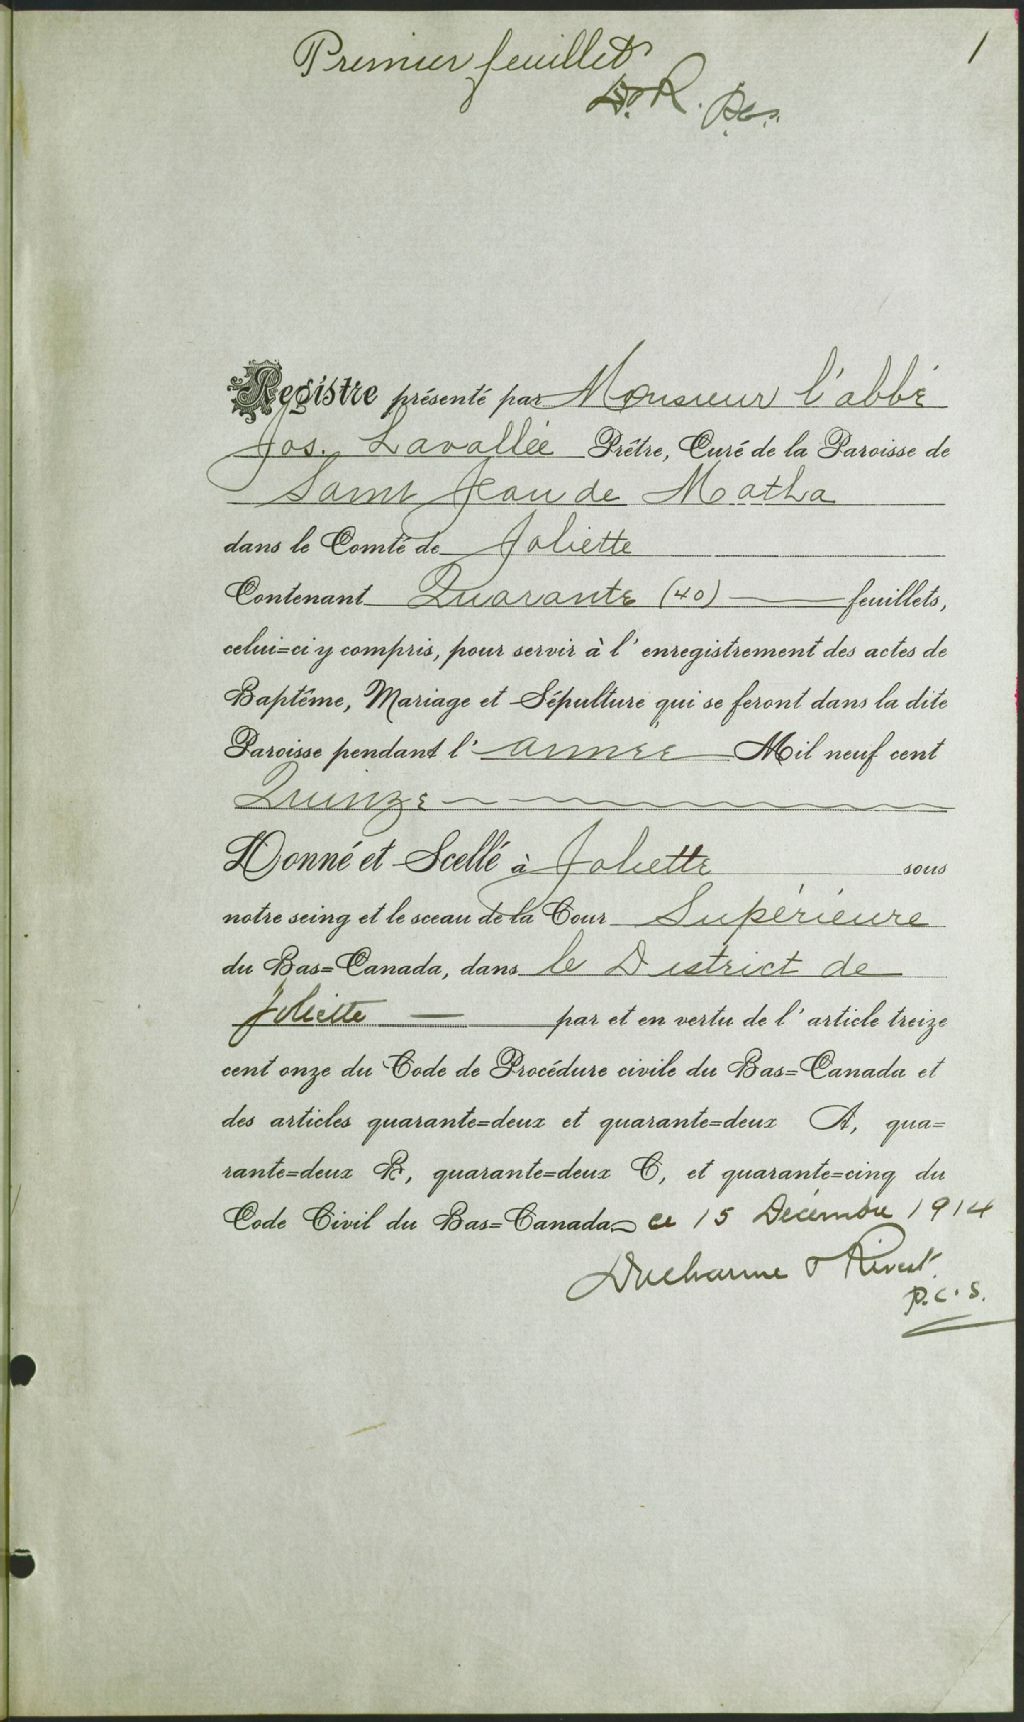 1
Premier feuillet
D. & R. P.c.s.
Registre présenté par Monsieur l'abbé
Jos. Lavallée Prêtre, Curé de la Paroisse de
Saint Jean de Matha
dans le Comté de Joliette
Contenant Quarante (40) feuillets,
celui=ci y compris, pour servir à l'enregistrement des actes de
Baptême, Mariage et Sépulture qui se feront dans la dite
Paroisse pendant l'année Mil neuf cent
Quinze
Donné et Scellé à Joliette sous
notre seing et le sceau de la Cour Supérieure
du Bas=Canada, dans le District de
Joliette — par et en vertu de l'article treize
cent onze du Code de Procédure civile du Bas=Canada et
des articles quarante=deux et quarante=deux A, qua=
rante=deux B, quarante=deux C, et quarante=cinq du
Code Civil du Bas=Canada ce 15 Décembre 1914
Ducharme & Rivest
P.C.S.